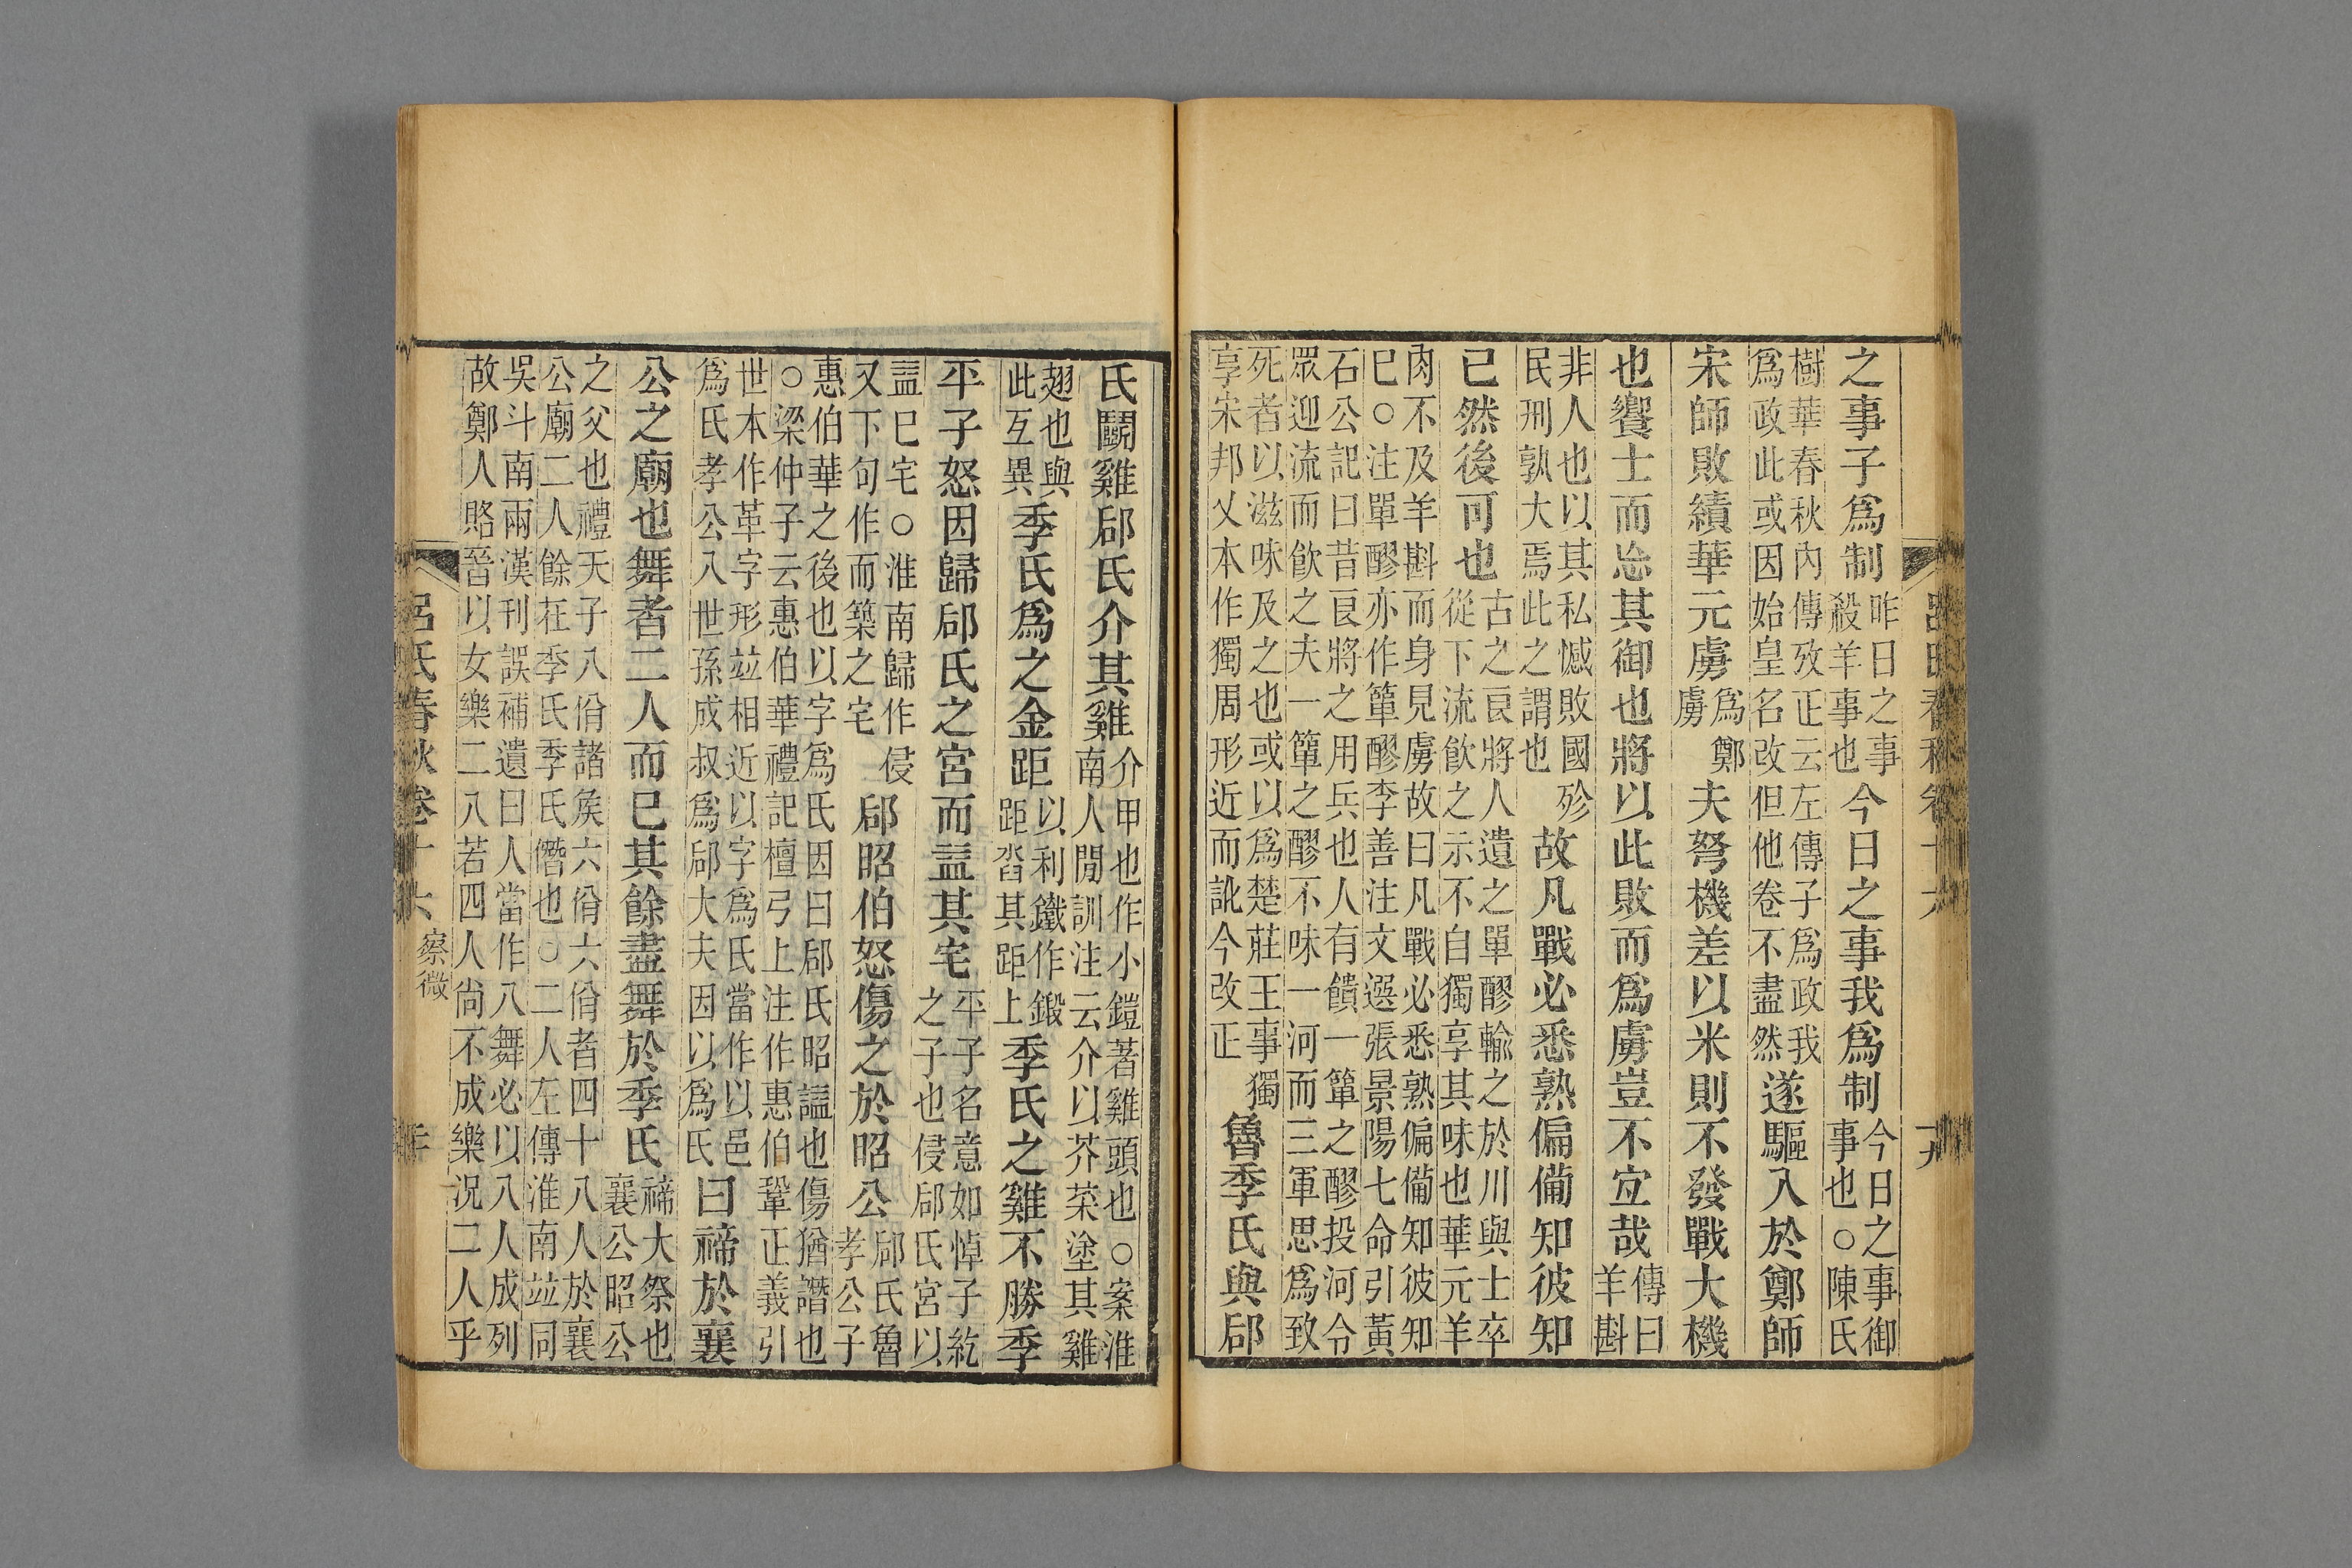 之事子爲制昨日之事殺羊事也今日之事我爲制今日之事御事也○陳氏
樹華春秋內傳攷正云左傳子爲政我爲政此或因始皇名改但他卷不盡然遂驅入於鄭師
宋師敗績華元虜爲鄭虜夫弩機差以米則不發戰大機
也饗士而忘其御也將以此敗而爲虜豈不宜哉傳曰羊斟
非人也以其私憾敗國殄民刑孰大焉此之謂也故凡戰必悉熟偏備知彼知
已然後可也古之良將人遺之單醪輸之於川與士卒從下流飮之示不自獨享其味也華元羊
肉不及羊斟而身見虜故曰凡戰必悉熟偏備知彼知已○注單醪亦作簞醪李善注文選張景陽七命引黃
石公記曰昔良將之用兵也人有饋一簞之醪投河令眾迎流而飮之夫一簞之醪不味一河而三軍思爲致
死者以滋味及之也或以爲楚莊王事獨享宋邦乂本作獨周形近而訛今改正魯季氏與郈
氏鬭雞郈氏介其雞介甲也作小鎧著雞頭也○案淮南人閒訓注云介以芥菜塗其雞
翅也與此互異季氏爲之金距以利鐵作鍛距沓其距上季氏之雞不勝季
平子怒因歸郈氏之宮而益其宅平子名意如悼子紇之子也侵郈氏宮以
益已宅○淮南歸作侵又下句作而築之宅郈昭伯怒傷之於昭公郈氏魯孝公子
惠伯華之後也以字爲氏因曰郈氏昭諡也傷猶譖也○梁仲子云惠伯華禮記檀弓上注作惠伯鞏正義引
世本作革字形竝相近以字爲氏當作以邑爲氏孝公八世孫成叔爲郈大夫因以爲氏曰禘於襄
公之廟也舞者二人而已其餘盡舞於季氏禘大祭也襄公昭公
之父也禮天子八佾諸矦六佾六佾者四十八人於襄公廟二人餘在季氏季氏僭也○二人左傳淮南竝同
吳斗南兩漢刊誤補遺曰人當作八舞必以八人成列故鄭人賂晉以女樂二八若四人尚不成樂况二人乎
呂氏春秋卷十六 察微